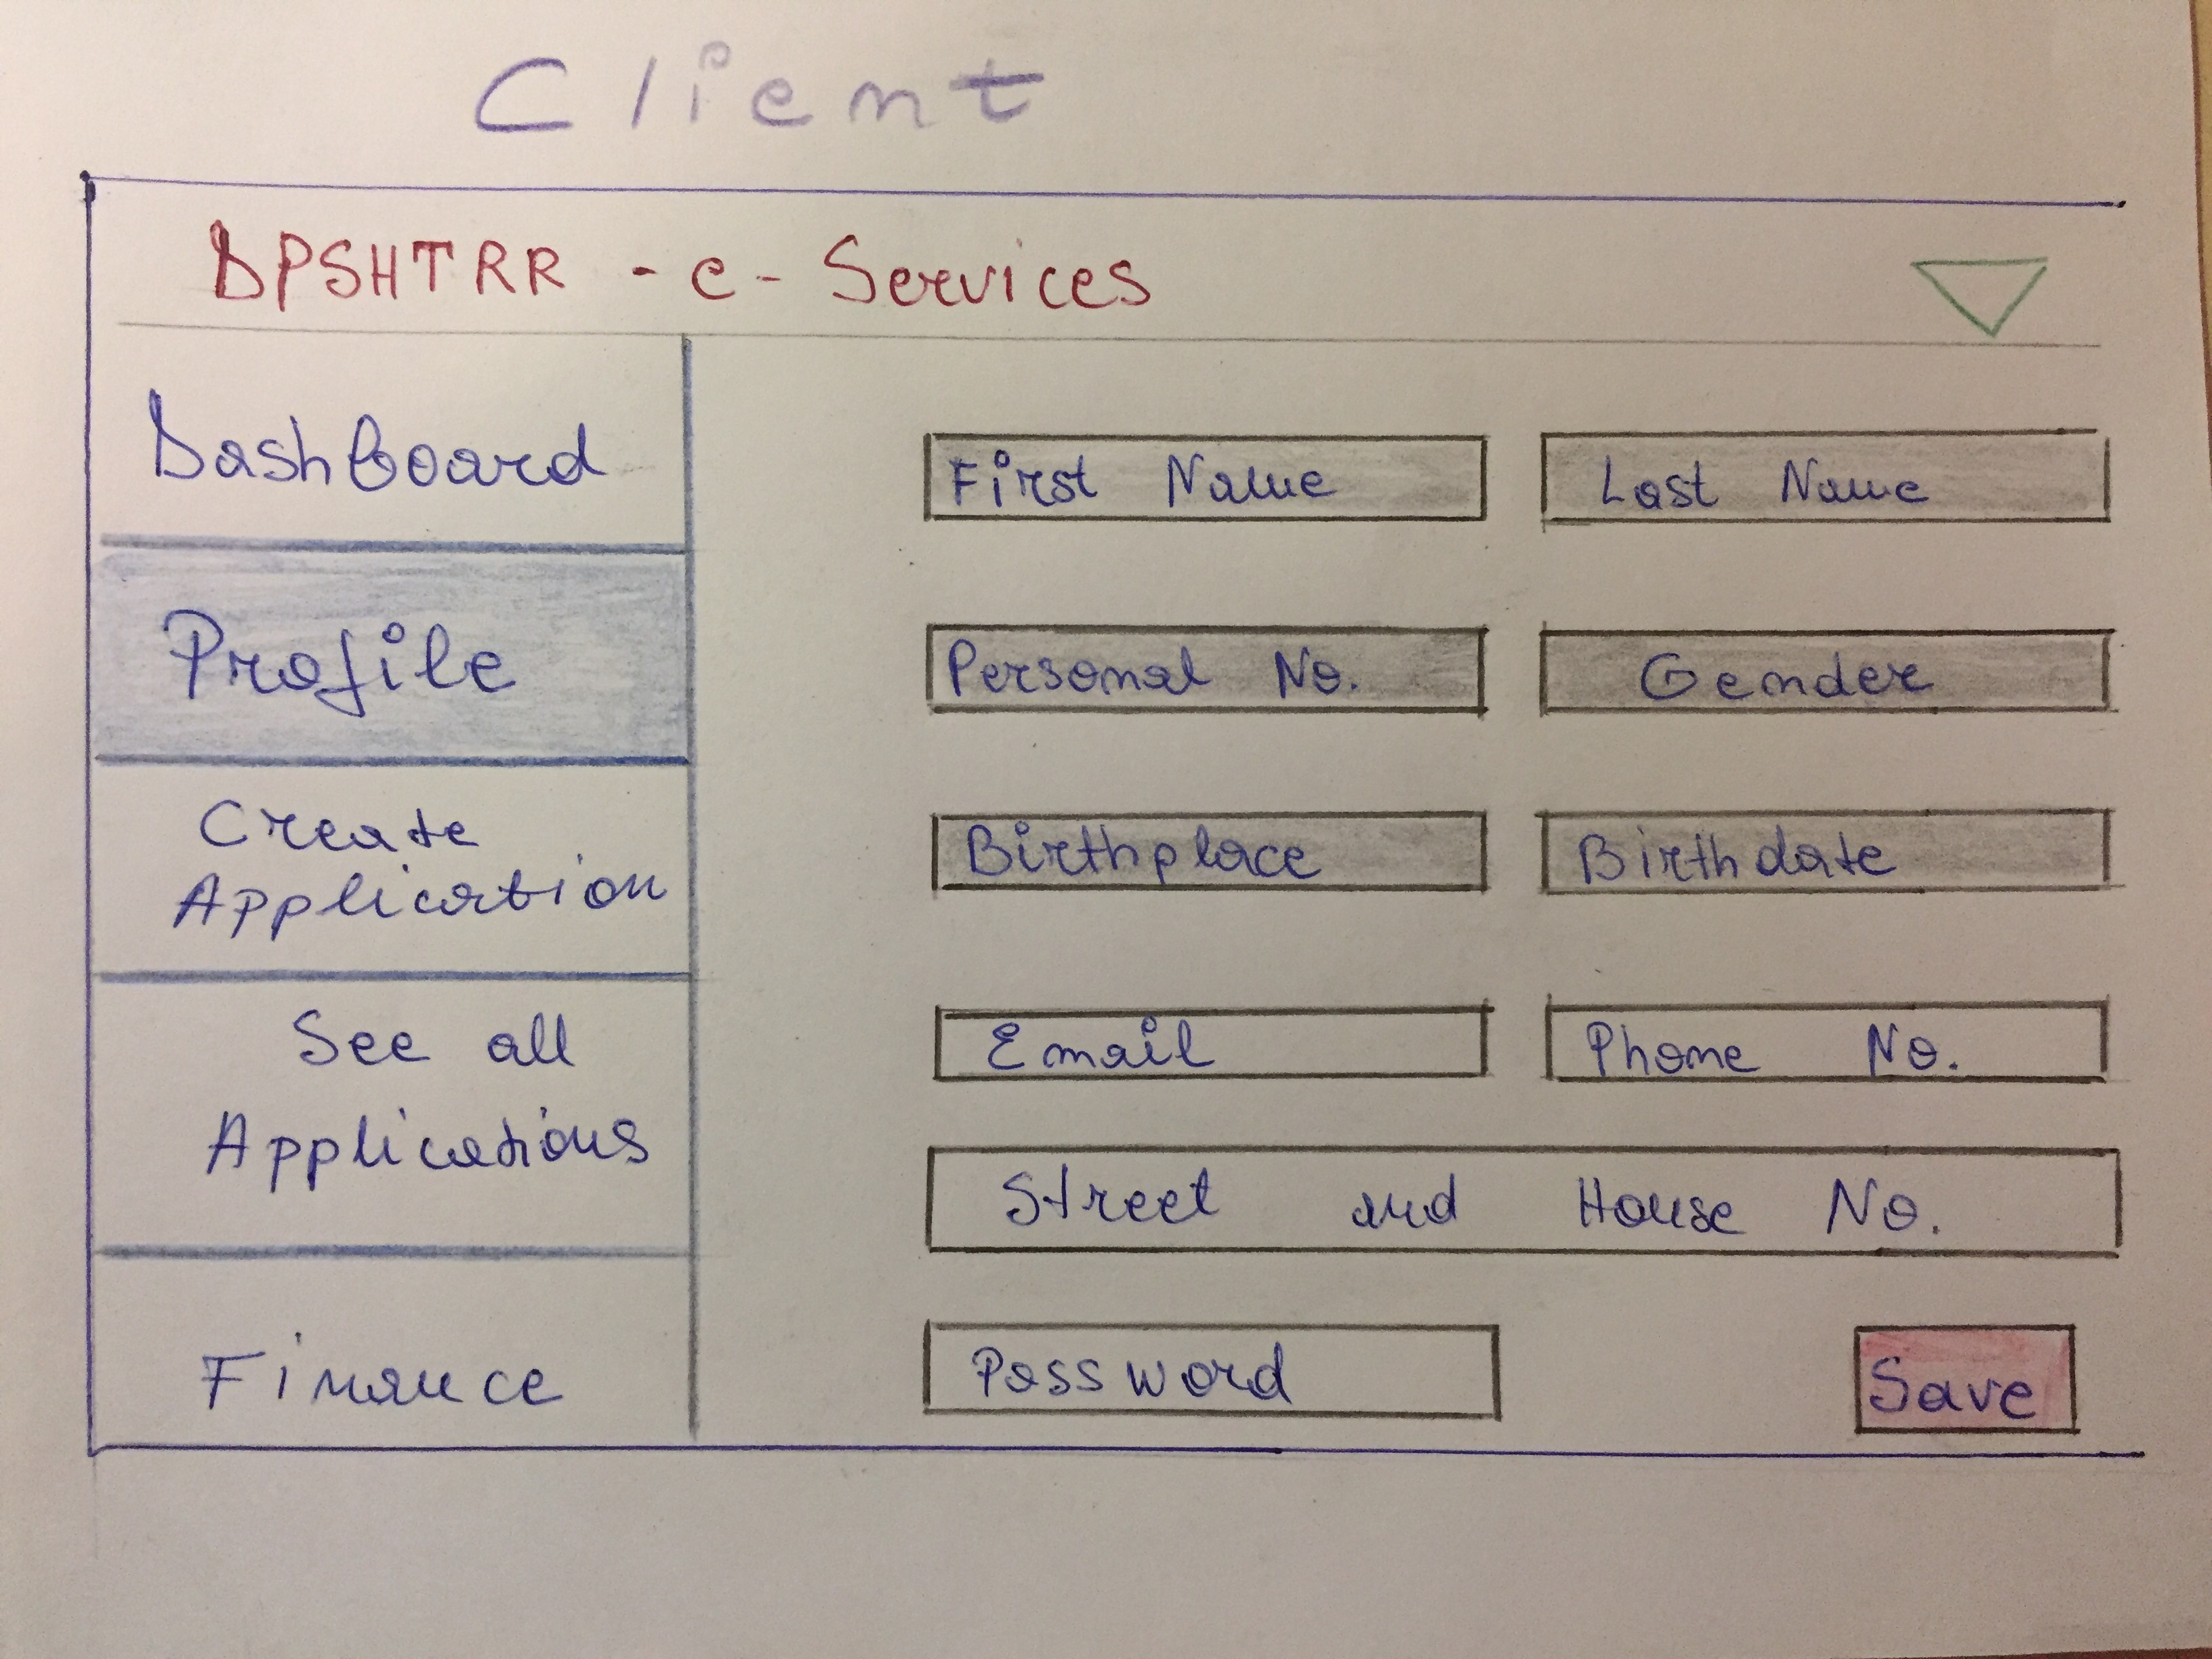 Client
DPSHTRR - e - Services
Dashboard
Profile
Create
Application
See all
Applications
Finance
First Name
Last Name
Personal No.
Gender
Birthplace
Birthdate
Email
Phone No.
Street and House No.
Password
Save